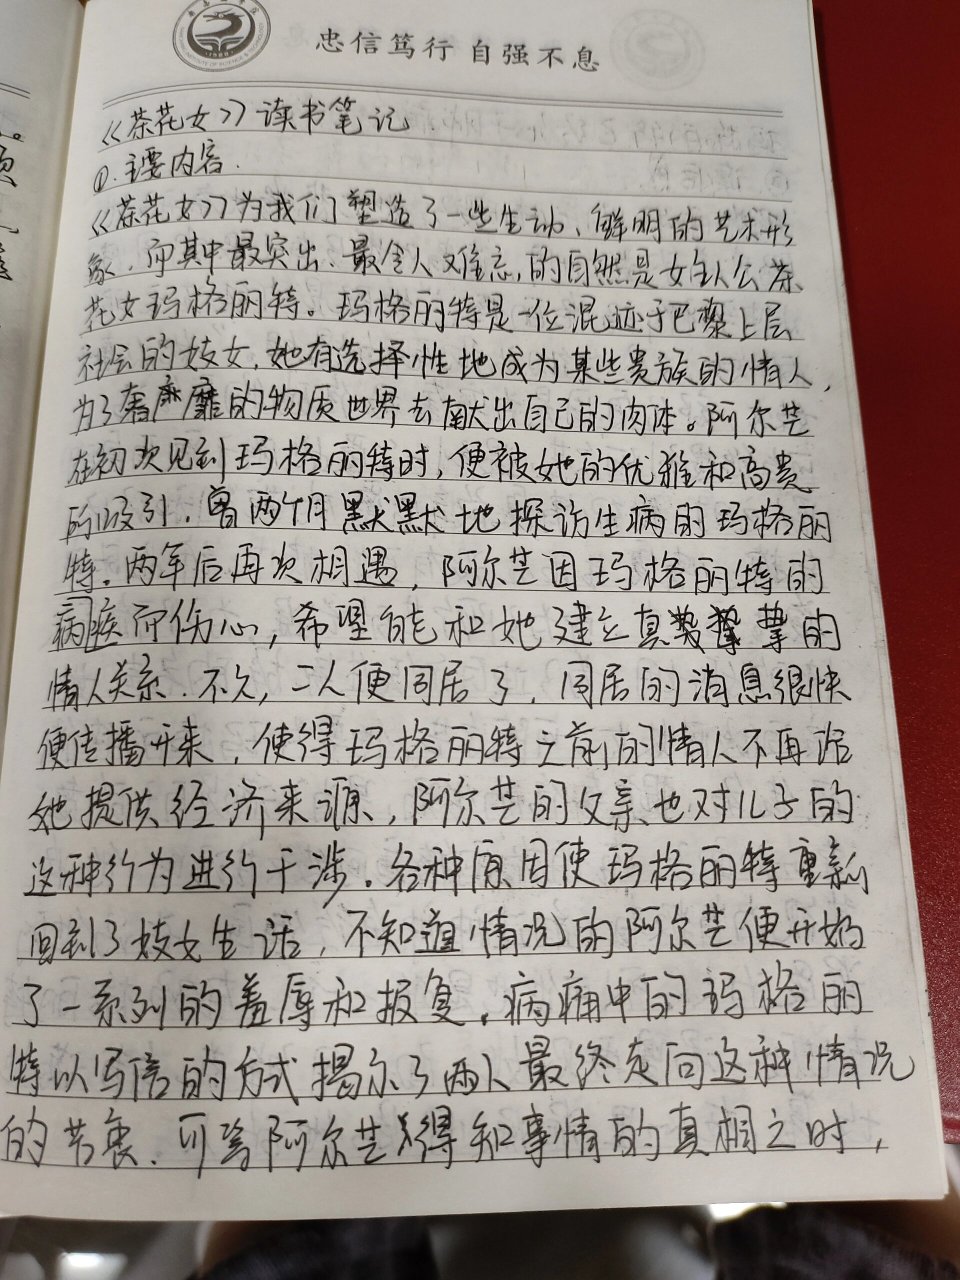 忠信笃行 自强不息
《茶花女》读书笔记
①.主要内容.
《茶花女》为我们塑造了一些生动、鲜明的艺术形
象.而其中最突出、最令人难忘,的自然是女主人公茶
花女玛格丽特。玛格丽特是一位混迹于巴黎上层
社会的妓女,她有选择性地成为某些贵族的情人,
为了奢靡的物质世界去献出自己的肉体。阿尔芒
在初次见到玛格丽特时,便被她的优雅和高贵
所吸引.曾两个月默默地探访生病的玛格丽
特.两年后再次相遇,阿尔芒因玛格丽特的
病疾而伤心,希望能和她建立真挚的
情人关系.不久,二人便同居了.同居的消息很快
便传播开来,使得玛格丽特之前的情人不再给
她提供经济来源,阿尔芒的父亲也对儿子的
这种行为进行干涉.各种原因使玛格丽特重新
回到了妓女生活,不知道情况的阿尔芒便开始
了一系列的羞辱和报复.病痛中的玛格丽
特以写信的方式揭示了两人最终走向这种情况
的苦衷.可当阿尔芒得知事情的真相之时,